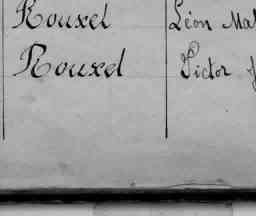 Rouxel Léon Mat
Rouxel Victor J